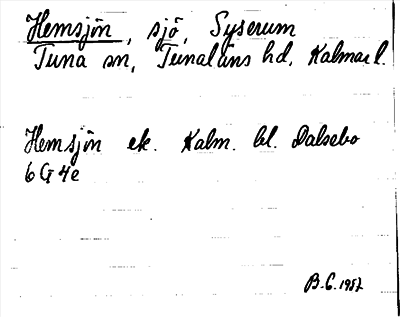 Hemsjön, sjö, Syserum
Tuna sn, Tunaläns hd, Kalmar l.
Hemsjön ek. Kalm. bl. Dalsebo
6 G 4 e
B.G. 1982